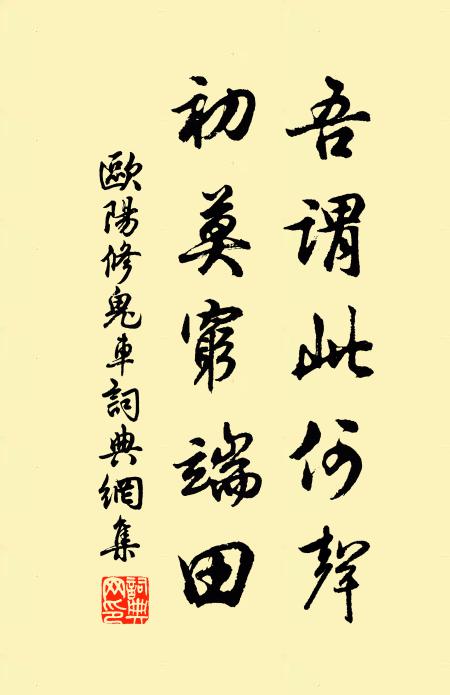 吾謂此何聲
初莫窮端田
歐陽修鬼車詞典網集
詞典
网印